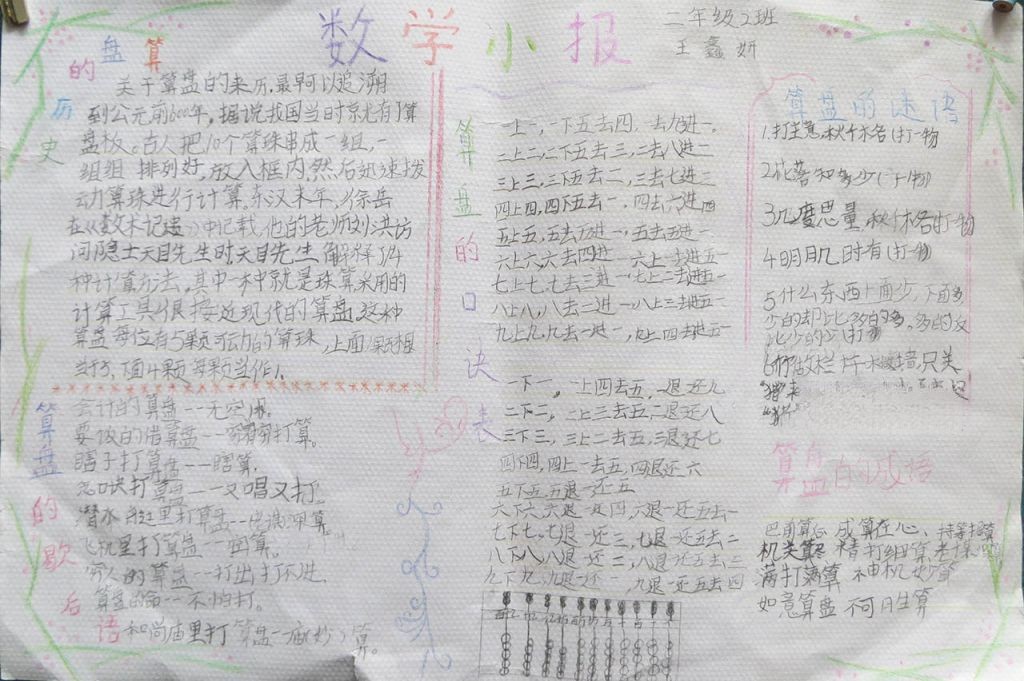 数学小报
二年级2班
王鑫妍
算盘的历史
关于算盘的来历,最早可以追溯
到公元前600年,据说我国当时就有了算
盘板。古人把10个算珠串成一组,一
组组排列好,放入框内,然后迅速拨
动算珠进行计算。东汉末年,徐岳
在《数术记遗》中记载,他的老师刘洪访
问隐士天目先生时天目先生解释了14
种计算方法,其中一种就是珠算采用的
计算工具很接近现代的算盘,这种
算盘每位有5颗可动的算珠,上面1颗相
当于5,下面4颗每颗当作1。
算盘的歇后语
会计的算盘--无空闲。
要饭的借算盘--穷有穷打算。
瞎子打算盘---瞎算。
念口诀打算盘--又唱又打。
潜水
里打算盘--
算。
飞机里打算盘--
算。
穷人的算盘--打出打不进。
算盘的命--不怕打。
和尚庙里打算盘--
算。
算盘的口诀表
一上一,一下五去四,一去九进一,
二上二,二下五去三,二去八进一
三上三,三下五去二,三去七进一
四上四,四下五去一,四去六进一
五上五,五去五进一,
六上六,六去四进一,六上一去五进一
七上七,七去三进一,七上二去五进一
八上八,八去二进一,八上三去五进一
九上九,九去一进一,九上四去五进一
一下一,一上四去五,一退还九
二下二,二上三去五,二退还八
三下三,三上二去五,三退还七
四下四,四上一去五,四退还六
五下五,五退一还五
六下六,六退一还四,六退一还五去一
七下七,七退一还三,七退一还五去二
八下八,八退一还二,八退一还五去三
九下九,九退一还一,九退一还五去四
算盘的迷语
1.打主意,秋千木各(打一物
2.花落知多少(打一物)
3.几度思量,
(打一物
4.明月几时有(打一物)
5.什么东西上面少,下面多,
少的却比多的多。多的反
比少的少(打一物
算盘的成语
成算在心、
机关算尽 精打细算
满打满算 神机妙算
如意算盘 不可胜算